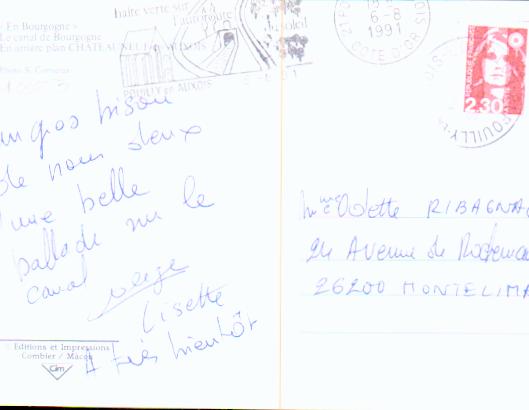 « En Bourgogne »
Le canal de Bourgogne
En arrière plan CHATEAUNEUF en AUXOIS
Photo S.
halte verte sur
l'autoroute
du soleil
POUILLY en AUXOIS
21 PO
6-8
1991
COTE D'OR
RÉPUBLIQUE FRANÇAISE
2,30
POUILLY
un gros bisou
de nous deux
d'une belle
ballade sur le
canal
Serge
Lisette
A très bientôt
Editions et Impressions
Combier / Mâcon
Cim
Mme Odette RIBAGNAC
24 Avenue de
26200 MONTELIMA